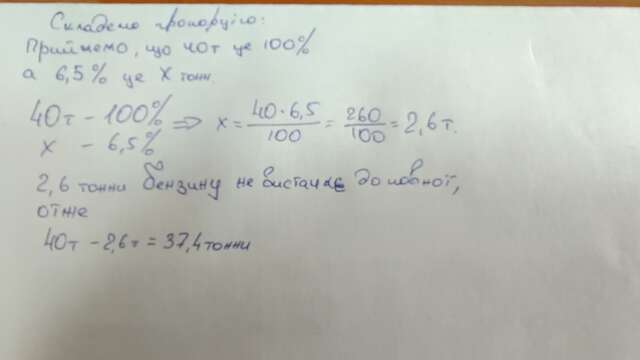 Складемо пропорцію:
Приймемо, що 40т це 100%
а 6,5% це х тонн.
40т - 100% ⇒ х = 40·6,5/100 = 260/100 = 2,6 т.
х - 6,5%
2,6 тонни бензину не вистачає до повної,
отже
40т - 2,6т = 37,4 тонни